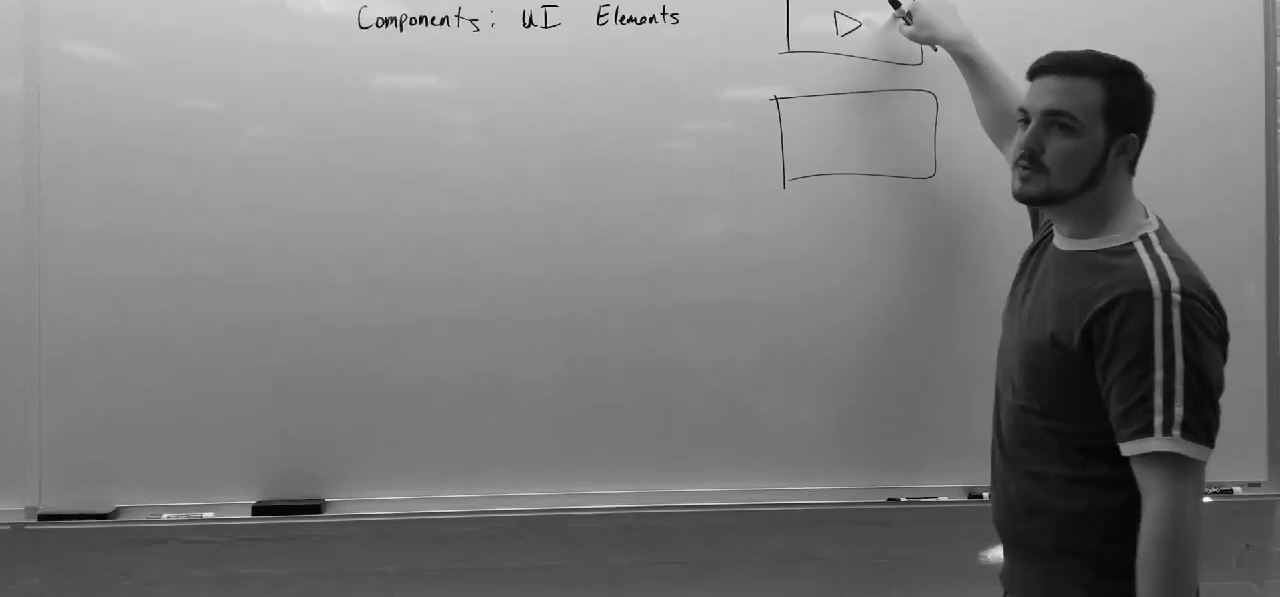 Components: UI Elements